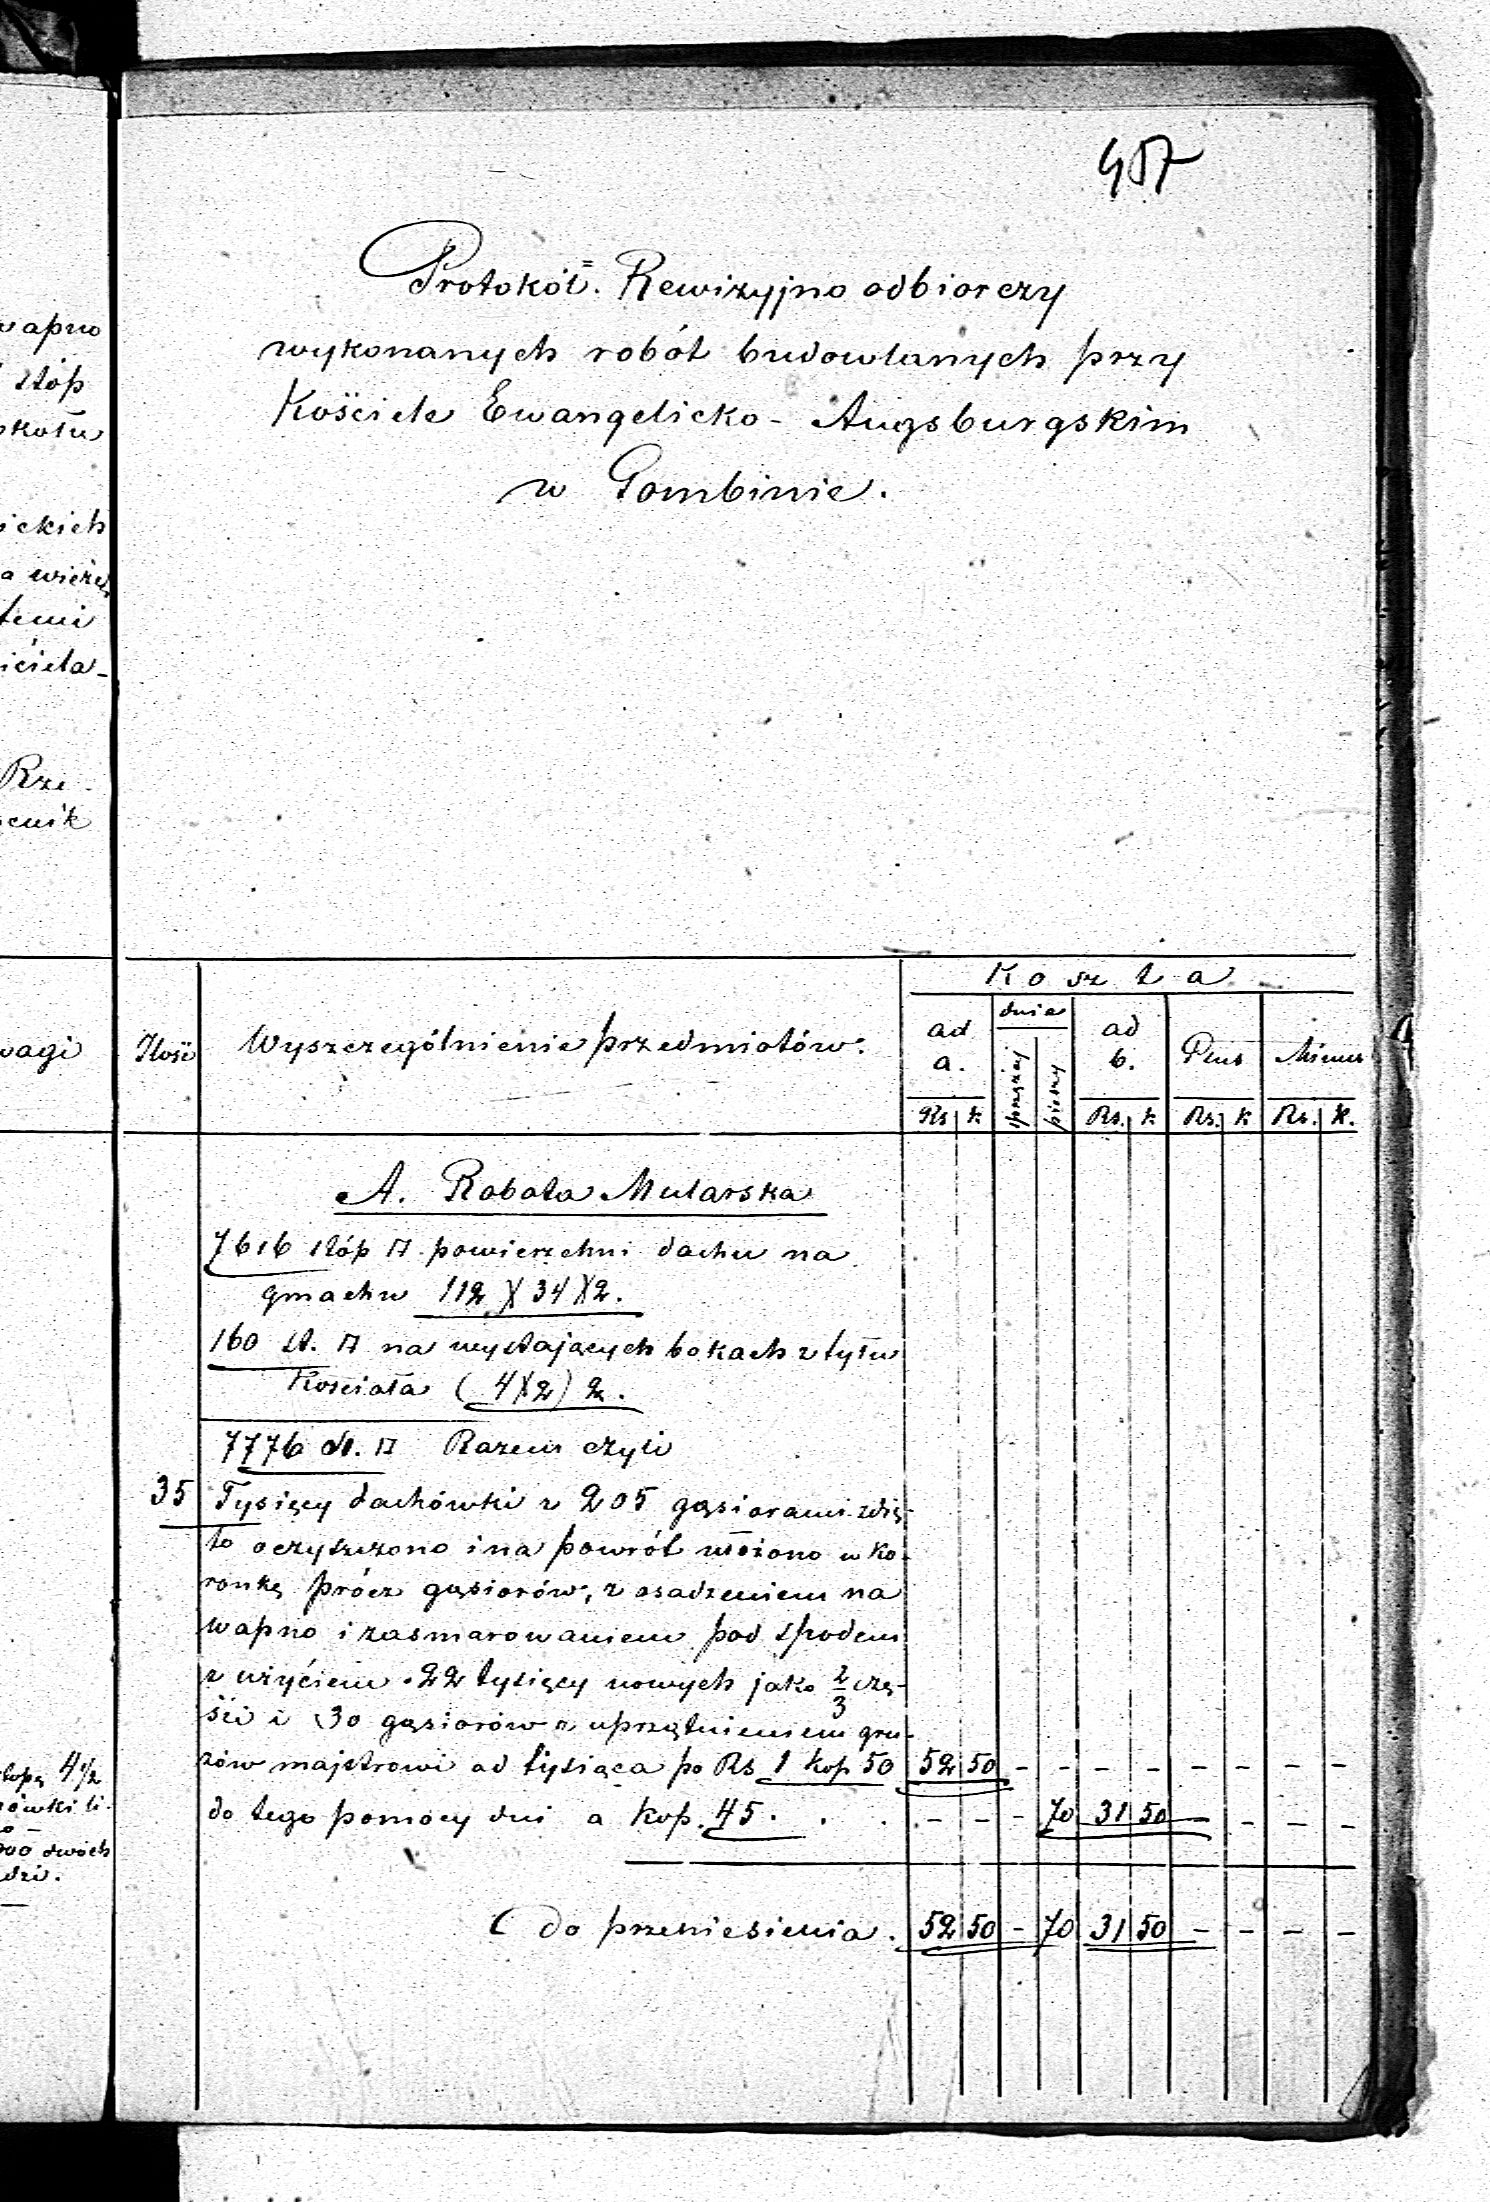 457
Protokół. Rewizyjno odbiorczy
wykonanych robót budowlanych przy
Kościele Ewangelicko-Augsburgskim
w Gombinie.
wapno
stóp
ickich
a wieżę
temi
Rze
wagi
4 1/2
dwóch
Koszta
Ilość
Wyszczególnienie przedmiotów.
ad a.
dnie
sprzężaj
pieszy
ad b.
Plus
Minus
Rs k Rs. k Rs. k Rs. k.
A. Robota Mularska
7616 stóp □ powierzchni dachu na
gmachu 112 X 34 X 2.
160 st. □ na wystających bokach z tyłu
Kościoła (4X2) 2.
7776 st. □ Razem czyli
35 Tysięcy dachówki z 205 gąsiorami zdię-
to oczyszczono i na powrót ułożono w ko-
ronkę prócz gąsiorów, z osadzeniem na
wapno i zasmarowaniem pod spodem
z użyciem 22 tysięcy nowych jako 2/3 czę-
ści i 30 gąsiorów z uprzątnieniem gru-
zów majstrowi od tysiąca po Rs 1 kop 50 52 50 - - - - - - - -
do tego pomocy dni a kop. 45. . . - - - 70 31 50 - - - -
do przeniesienia. 52 50 - 70 31 50 - - - -